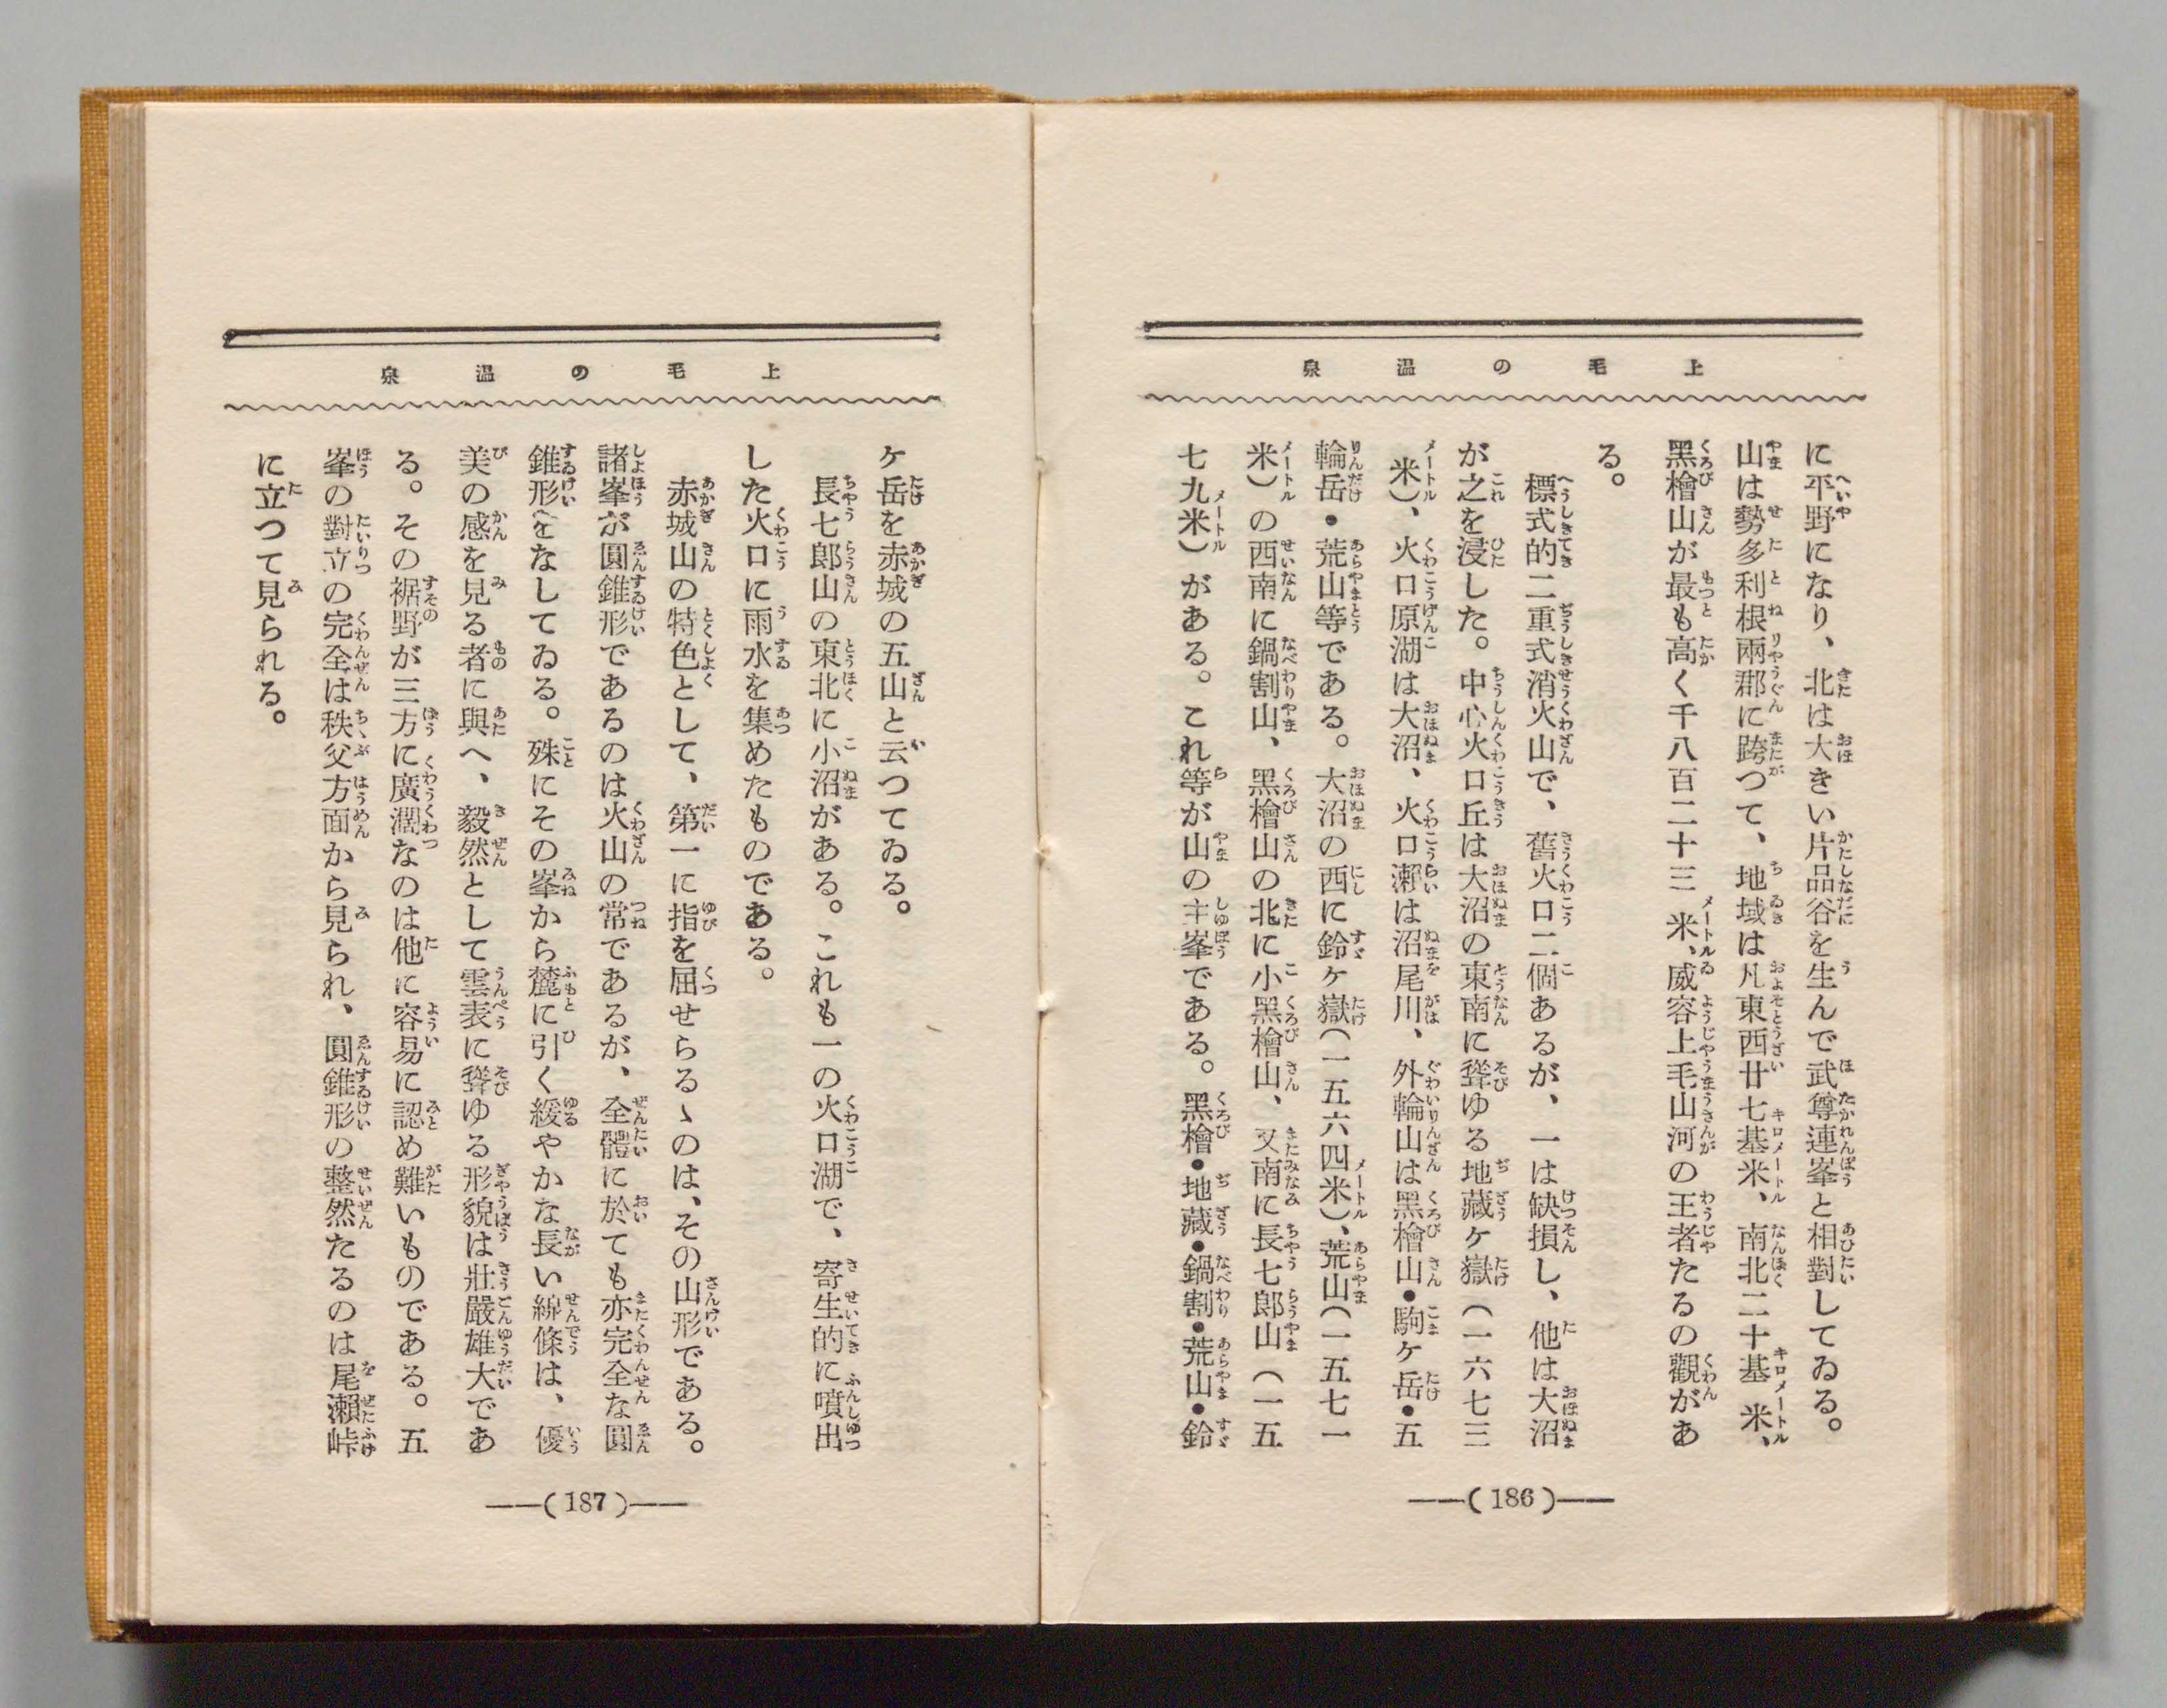 上毛の温泉
に平野になり、北は大きい片品谷を生んで武尊連峯と相對してゐる。
山は勢多利根兩郡に跨つて、地域は凡東西廿七基米、南北二十基米、
黑檜山が最も高く千八百二十三米、威容上毛山河の王者たるの觀があ
る。
標式的二重式消火山で、舊火口二個あるが、一は缺損し、他は大沼
が之を浸した。中心火口丘は大沼の東南に聳ゆる地藏ケ嶽（一六七三
米）、火口原湖は大沼、火口瀨は沼尾川、外輪山は黑檜山・駒ケ岳・五
輪岳・荒山等である。大沼の西に鈴ケ嶽（一五六四米）、荒山（一五七一
米）の西南に鍋割山、黑檜山の北に小黑檜山、又南に長七郎山（一五
七九米）がある。これ等が山の主峯である。黑檜・地藏・鍋割・荒山・鈴
（186）
上毛の温泉
ケ岳を赤城の五山と云つてゐる。
長七郎山の東北に小沼がある。これも一の火口湖で、寄生的に噴出
した火口に雨水を集めたものである。
赤城山の特色として、第一に指を屈せらるゝのは、その山形である。
諸峯が圓錐形であるのは火山の常であるが、全體に於ても亦完全な圓
錐形をなしてゐる。殊にその峯から麓に引く緩やかな長い線條は、優
美の感を見る者に與へ、毅然として雲表に聳ゆる形貌は壯嚴雄大であ
る。その裾野が三方に廣濶なのは他に容易に認め難いものである。五
峯の對立の完全は秩父方面から見られ、圓錐形の整然たるのは尾瀨峠
に立つて見られる。
（187）